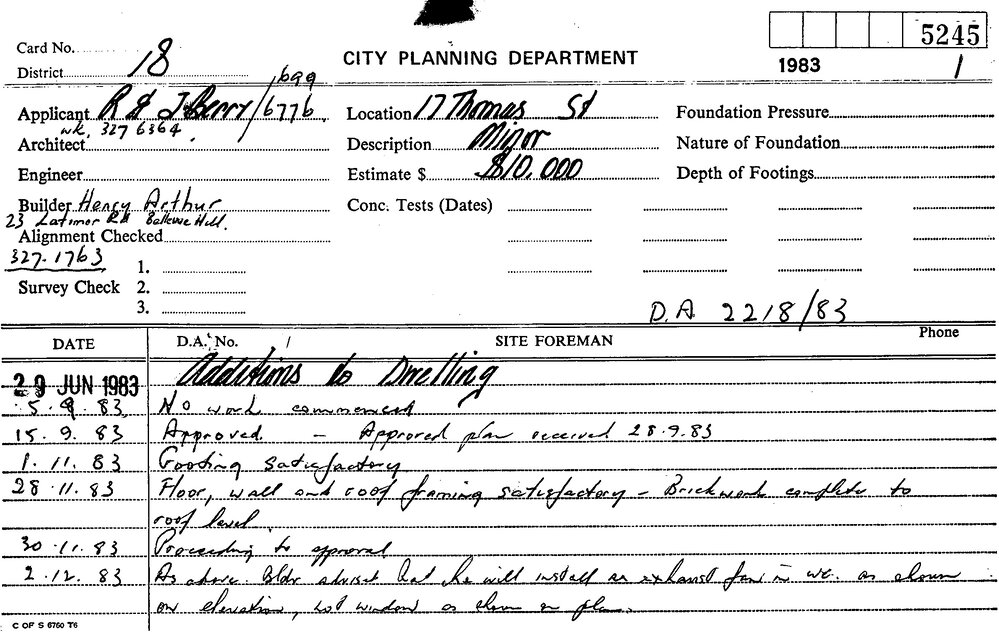 5245
Card No. 18
CITY PLANNING DEPARTMENT
District
1983 1
1699
Applicant R & J Berry/6776 Location 17 Thomas St Foundation Pressure
wk. 327 6364
Architect Description Minor Nature of Foundation
Engineer Estimate $ $10,000 Depth of Footings
Builder Henry Arthur Conc. Tests (Dates)
23 Latimer Rd Bellevue Hill.
Alignment Checked
327-1763
1.
Survey Check 2.
3.
D.A. 2218/83
DATE D.A. No. SITE FOREMAN Phone
29 JUN 1983 Additions to Dwelling
5.9.83 No work commenced
15.9.83 Approved. - Approved plan received 28.9.83
1.11.83 Footing satisfactory
28.11.83 Floor, wall and roof framing satisfactory - Brickwork complete to
roof level.
30.11.83 Proceeding to approval
2.12.83 As above. Bldr advised that he will install an exhaust fan in wc. as shown
on elevation, not window as shown on plan.
C OF S 6760 T6